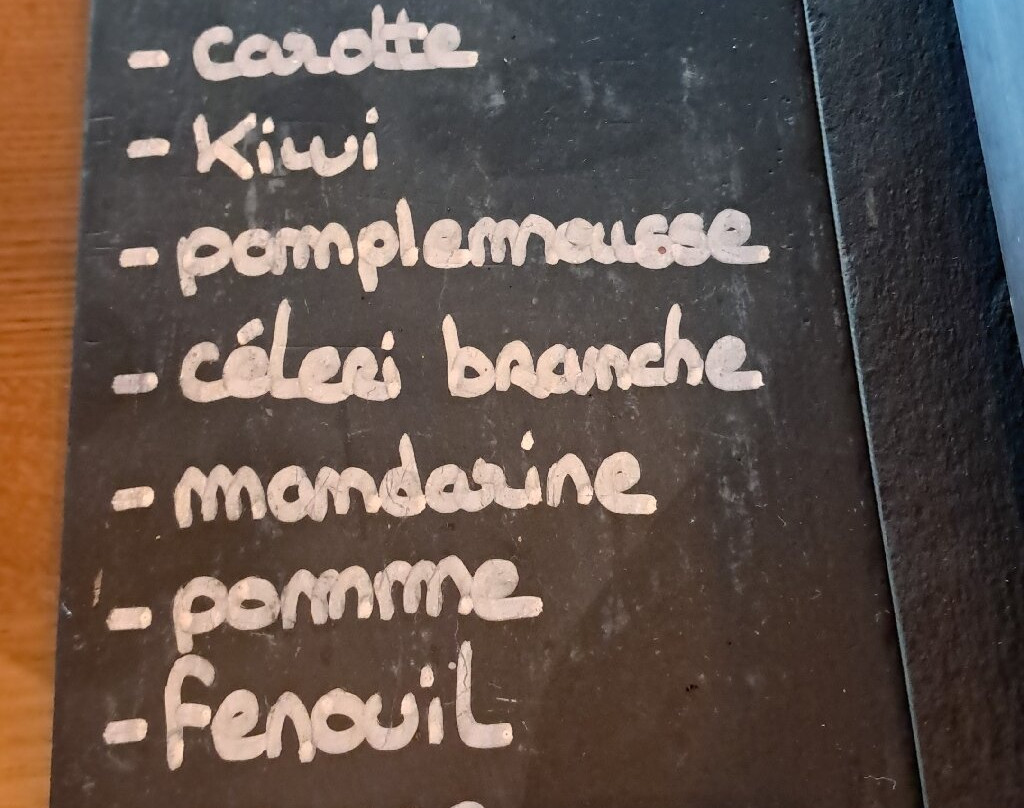 - carotte
- Kiwi
- pamplemousse
- céleri branche
- mandarine
- pomme
- fenouil